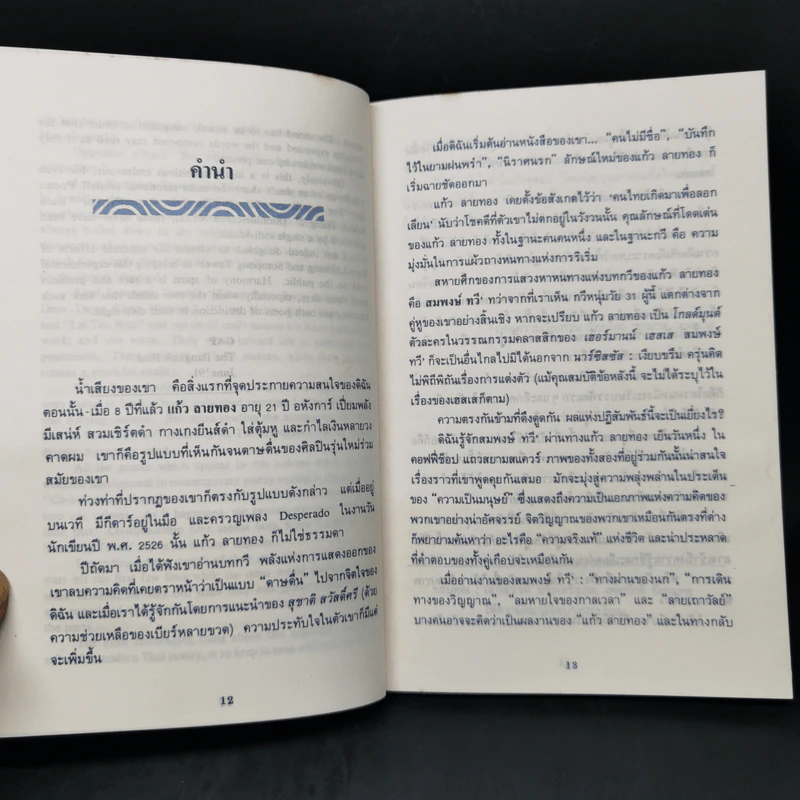 คำนำ
น้ำเสียงของเขา คือสิ่งแรกที่จุดประกายความสนใจของดิฉัน
ตอนนั้น-เมื่อ 8 ปีที่แล้ว แก้ว ลายทอง อายุ 21 ปี อหังการ์ เปี่ยมพลัง
มีเสน่ห์ สวมเชิร์ตดำ กางเกงยีนส์ดำ ใส่ตุ้มหู และกำไลเงินหลายวง
คาดผม เขาก็คือรูปแบบที่เห็นกันจนดาษดื่นของศิลปินรุ่นใหม่ร่วม
สมัยของเขา
ท่วงท่าที่ปรากฏของเขาก็ตรงกับรูปแบบดังกล่าว แต่เมื่ออยู่
บนเวที มีกีตาร์อยู่ในมือ และครวญเพลง Desperado ในงานวัน
นักเขียนปี พ.ศ. 2526 นั้น แก้ว ลายทอง ก็ไม่ใช่ธรรมดา
ปีถัดมา เมื่อได้ฟังเขาอ่านบทกวี พลังแห่งการแสดงออกของ
เขาลบความคิดที่เคยตราหน้าว่าเป็นแบบ “ดาษดื่น” ไปจากจิตใจของ
ดิฉัน และเมื่อเราได้รู้จักกันโดยการแนะนำของ สุชาติ สวัสดิ์ศรี (ด้วย
ความช่วยเหลือของเบียร์หลายขวด) ความประทับใจในตัวเขาก็มีแต่
จะเพิ่มขึ้น
12
เมื่อดิฉันเริ่มต้นอ่านหนังสือของเขา... “คนไม่มีชื่อ”, “บันทึก
ไว้ในยามฝนพรำ”, “นิราศนรก” ลักษณ์ใหม่ของแก้ว ลายทอง ก็
เริ่มฉายชัดออกมา
แก้ว ลายทอง เคยตั้งข้อสังเกตไว้ว่า ‘คนไทยเกิดมาเพื่อลอก
เลียน’ นับว่าโชคดีที่ตัวเขาไม่ตกอยู่ในวังวนนั้น คุณลักษณ์ที่โดดเด่น
ของแก้ว ลายทอง ทั้งในฐานะคนคนหนึ่ง และในฐานะกวี คือ ความ
มุ่งมั่นในการแผ้วถางหนทางแห่งการริเริ่ม
สหายศึกของการแสวงหาหนทางแห่งบทกวีของแก้ว ลายทอง
คือ สมพงษ์ ทวี’ ทว่าจากที่เราเห็น กวีหนุ่มวัย 31 ผู้นี้ แตกต่างจาก
คู่หูของเขาอย่างสิ้นเชิง หากจะเปรียบ แก้ว ลายทอง เป็น โกลด์มุนด์
ตัวละครในวรรณกรรมคลาสสิกของ เฮอร์มานน์ เฮสเส สมพงษ์
ทวี’ ก็จะเป็นอื่นไกลไปมิได้นอกจาก นาร์ซิสซัส : เงียบขรึม ครุ่นคิด
ไม่พิถีพิถันเรื่องการแต่งตัว (แม้คุณสมบัติข้อหลังนี้ จะไม่ได้ระบุไว้ใน
เรื่องของเฮสเสก็ตาม)
ความตรงกันข้ามที่ดึงดูดกัน ผลแห่งปฏิสัมพันธ์นี้จะเป็นเยี่ยงไร?
ดิฉันรู้จักสมพงษ์ ทวี’ ผ่านทางแก้ว ลายทอง เย็นวันหนึ่ง ใน
คอฟฟี่ช็อป แถวสยามสแควร์ ภาพของทั้งสองที่อยู่ร่วมกันนั้นน่าสนใจ
เรื่องราวที่เขาพูดคุยกันเสมอ มักจะมุ่งสู่ความพลุ่งพล่านในประเด็น
ของ “ความเป็นมนุษย์” ซึ่งแสดงถึงความเป็นเอกภาพแห่งความคิดของ
พวกเขาอย่างน่าอัศจรรย์ จิตวิญญาณของพวกเขาเหมือนกันตรงที่ต่าง
ก็พยายามค้นหาว่า อะไรคือ “ความจริงแท้” แห่งชีวิต และน่าประหลาด
ที่คำตอบของทั้งคู่เกือบจะเหมือนกัน
เมื่ออ่านงานของสมพงษ์ ทวี’ : “ทางผ่านของนก”, “การเดิน
ทางของวิญญาณ”, “ลมหายใจของกาลเวลา” และ “ลายเถาวัลย์”
บางคนอาจจะคิดว่าเป็นผลงานของ “แก้ว ลายทอง” และในทางกลับ
13